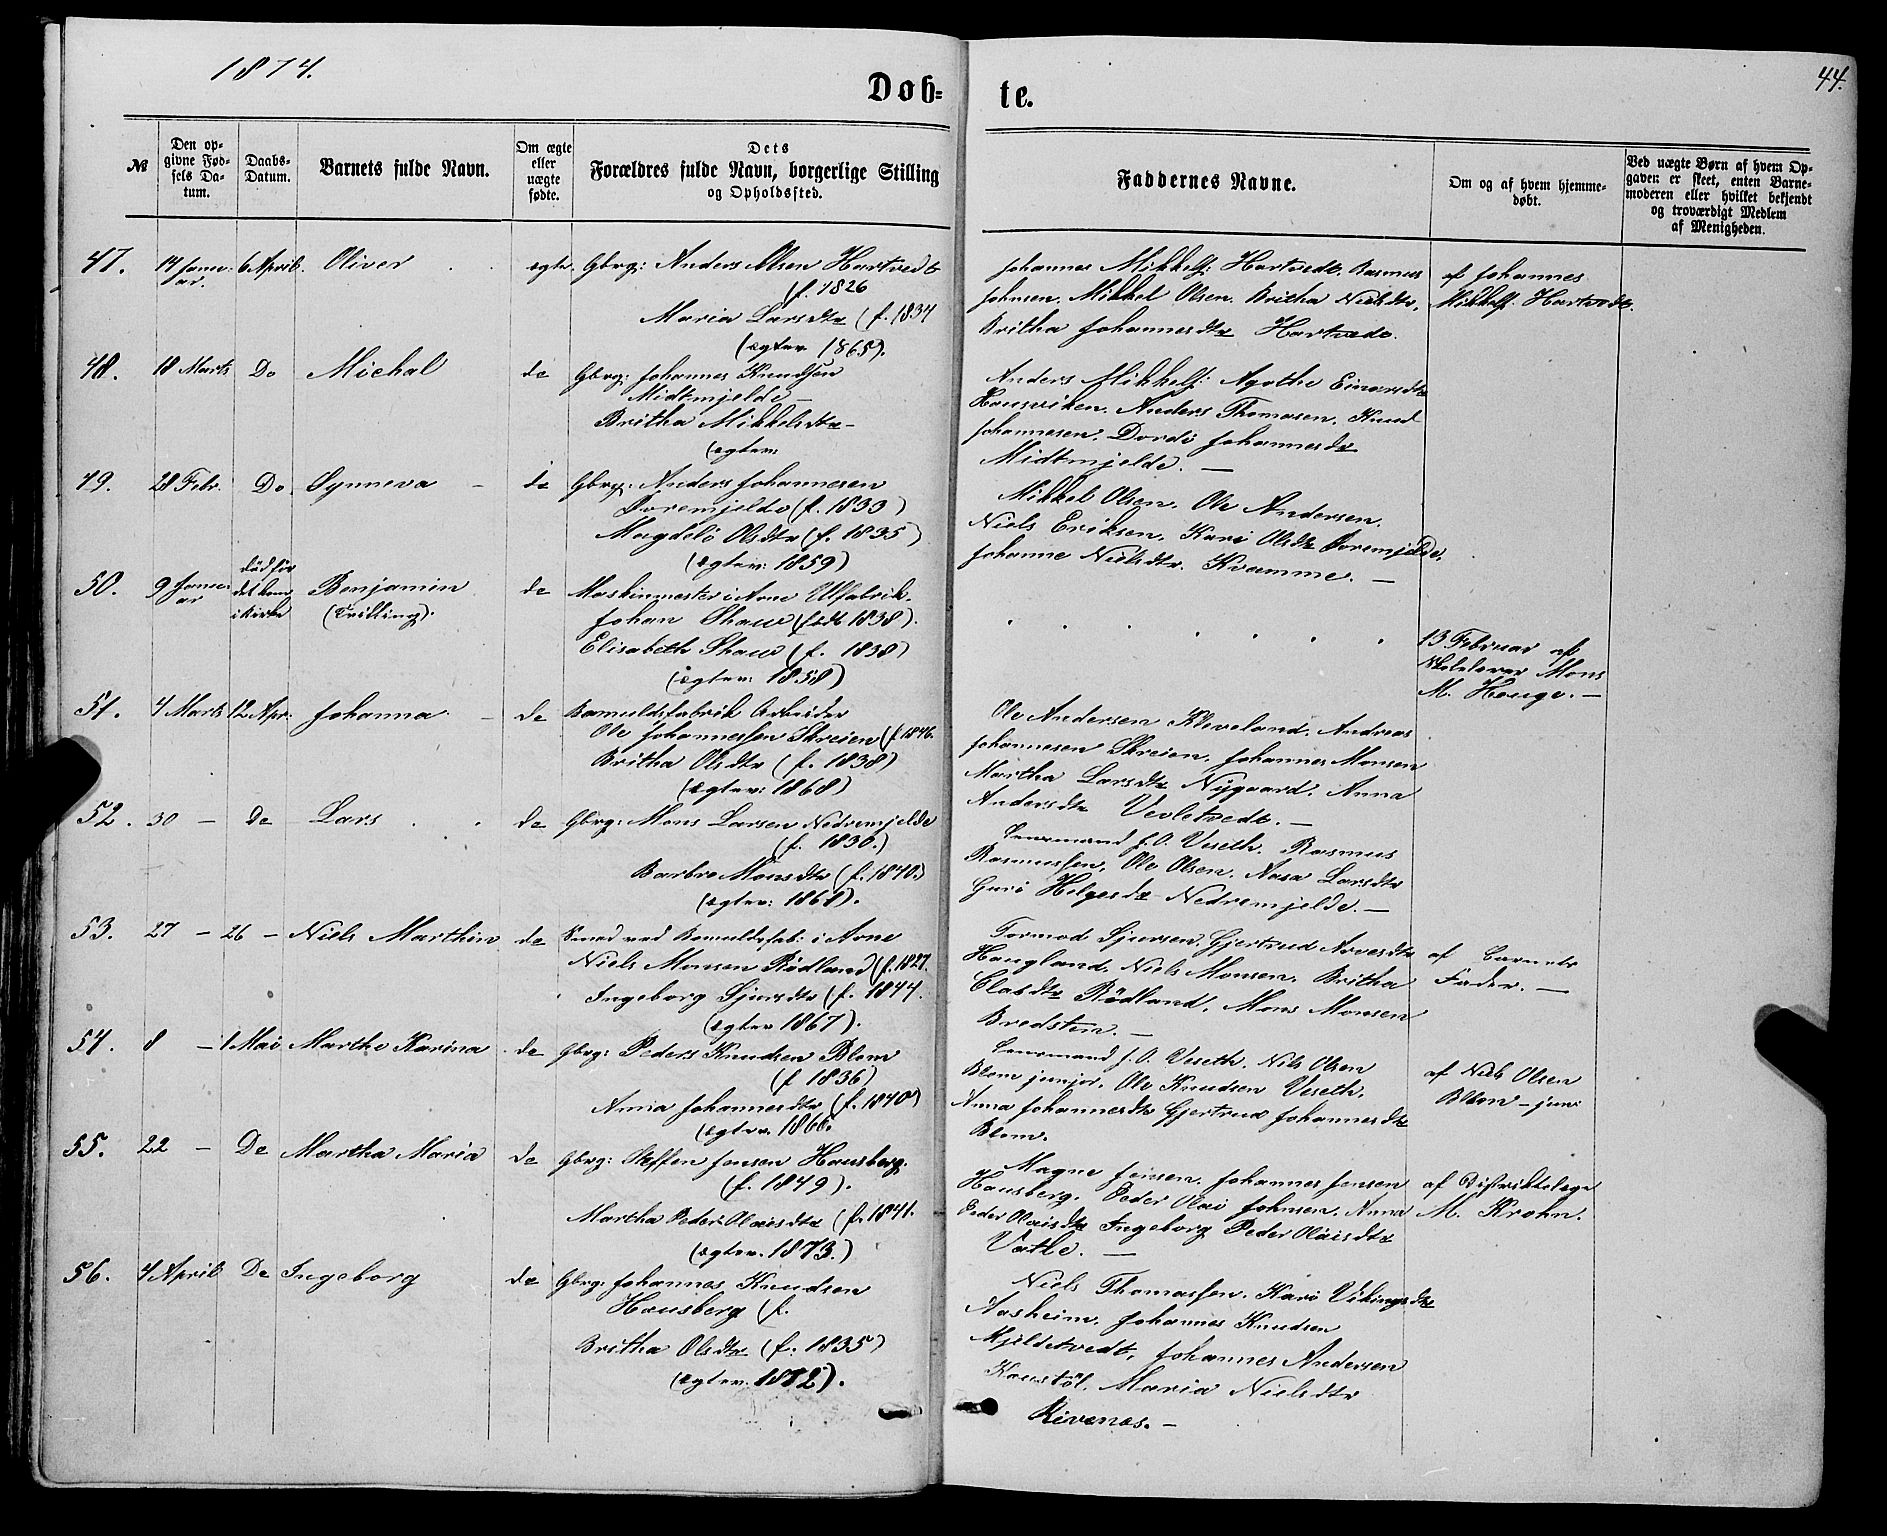 1874.
44.
Døb-
te.
№
Den op-
givne Fød-
sels Da-
tum.
Daabs-
Datum.
Barnets fulde Navn.
Om ægte
eller
uægte
fødte.
Dets
Forældres fulde Navn, borgerlige Stilling
og Opholdssted.
Faddernes Navne.
Om og af hvem hjemme-
døbt.
Ved uægte Børn af hvem Op-
gaven er skeet, enten Barne-
moderen eller hvilket bekjendt
og troværdigt Medlem
af Menigheden.
47. 14 Janu- 6 April. Oliver ægte Gbrg: Anders Olsen Hartvedt
ar.
(f. 1826
Maria Larsdtr (f. 1834
(ægtev. 1865).
Johannes Mikkels: Hartvedt. Rasmus
Johnsen. Mikkel Olsen. Britha Nielsdtr,
Britha Johannesdtr Hartvedt.
af Johannes
Mikkels. Hartvedt.
48. 18 Marts Do Michal do Gbrg: Johannes Knudsen
Midtmjelde –
Britha Mikkelsdtr –
(ægtev:
Anders Mikkels: Agathe Einarsdtr
Hausviken. Anders Thomasen. Knud
Johannesen. Dordi Johannesdtr
Midtmjelde. –
49. 28 Febr. Do Synneva – do Gbrg: Anders Johannesen
Døremjelde (f. 1833)
Magdeli Olsdtr (f. 1835)
(ægtev: 1859)
Mikkel Olsen. Ole Andersen.
Niels Eriksen. Kari Olsdtr Døremjelde.
Johanne Nielsdtr. Kvamme. –
50. 9 Janu- død før Benjamin do Maskinmester i Arne Ulfabrik.
ar det kom (Trilling).
i Kirke
Johan Shaw (født 1838).
Elisabeth Shaw (f. 1838)
(ægtev: 1858)
13 Februar af
Skolelærer Mons
M. Hauge. –
51. 4 Marts 12 Apr. Johanna – do Bomuldsfabrik Arbeider
Ole Johannessen Skreien (f. 1846.
Britha Olsdtr (f. 1838)
(ægtev: 1868)
Ole Andersen Kleveland. Andreas
Johannesen Skreien. Johannes Monsen
Martha Larsdtr Nygaard. Anna
Andersdtr Vevletvedt. –
52. 30 – Do Lars do Gbrg: Mons Larsen Nedremjelde
(f. 1830.)
Barbro Monsdtr (f. 1840.)
(ægtev: 1861).
Lensmand J. O. Veseth. Rasmus
Rasmussen, Ole Olsen. Aasa Larsdtr
Guri Helgesdtr Nedremjelde. –
53. 27 – 26 – Niels Marthin do Smed ved Bomuldsfab: i Arne
Niels Monsen Rødland (f. 1827.
Ingeborg Sjursdtr (f. 1844.
(ægtev 1867).
Tormod Sjursen. Gjertrud Arvesdtr
Haugland. Niels Monsen. Britha
Clasdtr Rødland. Mons Monsen
Bredsten. –
af Barnets
Fader. –
54. 8 – 1 Mai Marthe Karina do Gbrg: Peders Knudsen Blom
(f 1836)
Anna Johannesdtr (f. 1840)
(ægtev. 1866.
Lensmand J. O. Veseth. Nils Olsen
Blom junior. Ole Knudsen Veseth.
Anna Johannesdtr Gjertrud Johannesdtr
Blom.
af Niels Olsen
Blom – jun:
55. 22 – Do Martha Maria do Gbrg: Steffen Jensen Hausberg.
(f. 1849).
Martha Peder-Olaisdtr (f. 1841.
(ægtev. 1873.)
Magne Jensen. Johannes Jensen
Hausberg. Peder Olai Johnsen. Anna
Peder Olaisdtr Ingeborg Peder Olaisdtr
Vatle. –
af Distriktslæge
M. Krohn.
56. 4 April Do Ingeborg do Gbrg: Johannes Knudsen
Hausberg (f.
Britha Olsdtr (f. 1835)
(ægtev. 1872).
Niels Thomassen. Kari Vikingsdtr
Aasheim. Johannes Knudsen
Mjeldetvedt, Johannes Andersen
Kaustøl. Maria Nielsdtr
Rivenæs. –